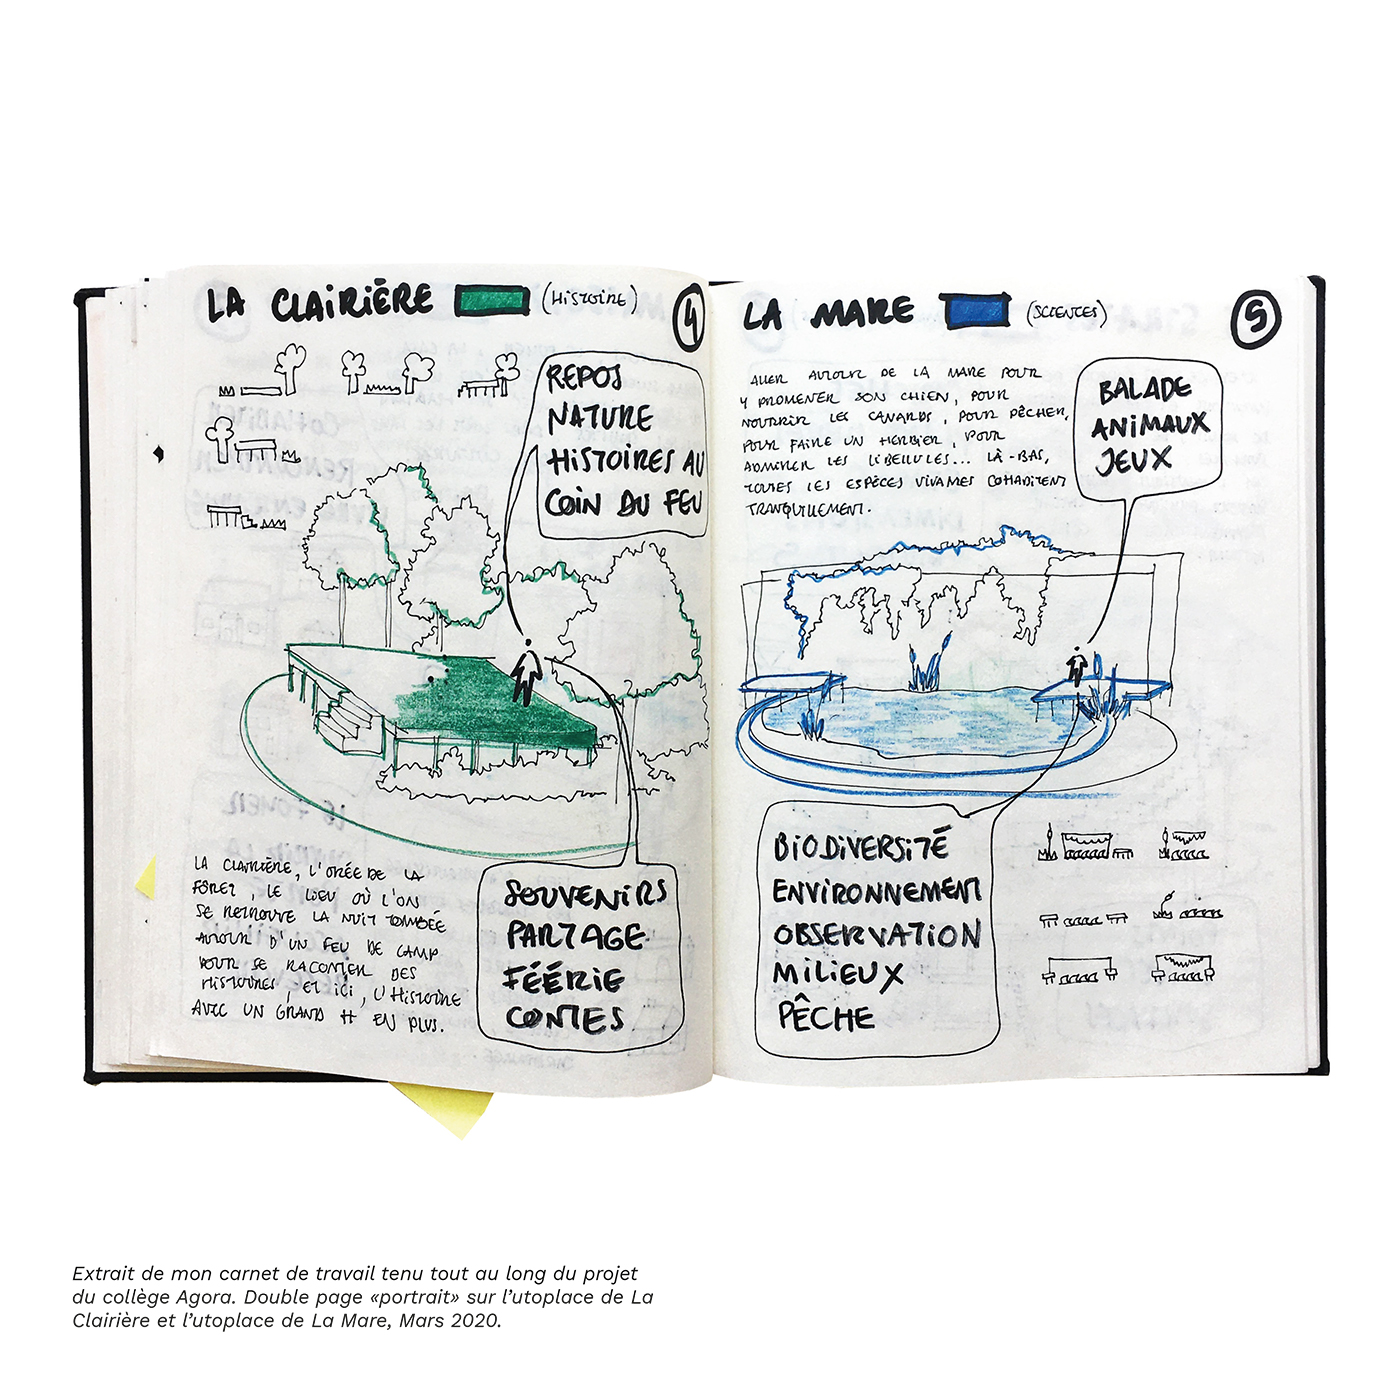 LA CLAIRIÈRE (HISTOIRE) 4
REPOS
NATURE
HISTOIRES AU
COIN DU FEU
LA CLAIRIÈRE, L'ORÉE DE LA
FÔRET, LE LIEU OÙ L'ON
SE RETROUVE LA NUIT TOMBÉE
AUTOUR D'UN FEU DE CAMP
POUR SE RACONTER DES
HISTOIRES, ET ICI, L'HISTOIRE
AVEC UN GRAND H EN PLUS.
SOUVENIRS
PARTAGE
FÉÉRIE
CONTES
LA MARE (SCIENCES) 5
ALLER AUTOUR DE LA MARE POUR
Y PROMENER SON CHIEN, POUR
NOURRIR LES CANARDS, POUR PÊCHER,
POUR FAIRE UN HERBIER, POUR
ADMIRER LES LIBELLULES... LÀ-BAS,
TOUTES LES ESPÈCES VIVANTES COHABITENT
TRANQUILLEMENT.
BALADE
ANIMAUX
JEUX
BIODIVERSITÉ
ENVIRONNEMENT
OBSERVATION
MILIEUX
PÊCHE
Extrait de mon carnet de travail tenu tout au long du projet
du collège Agora. Double page «portrait» sur l'utoplace de La
Clairière et l'utoplace de La Mare, Mars 2020.